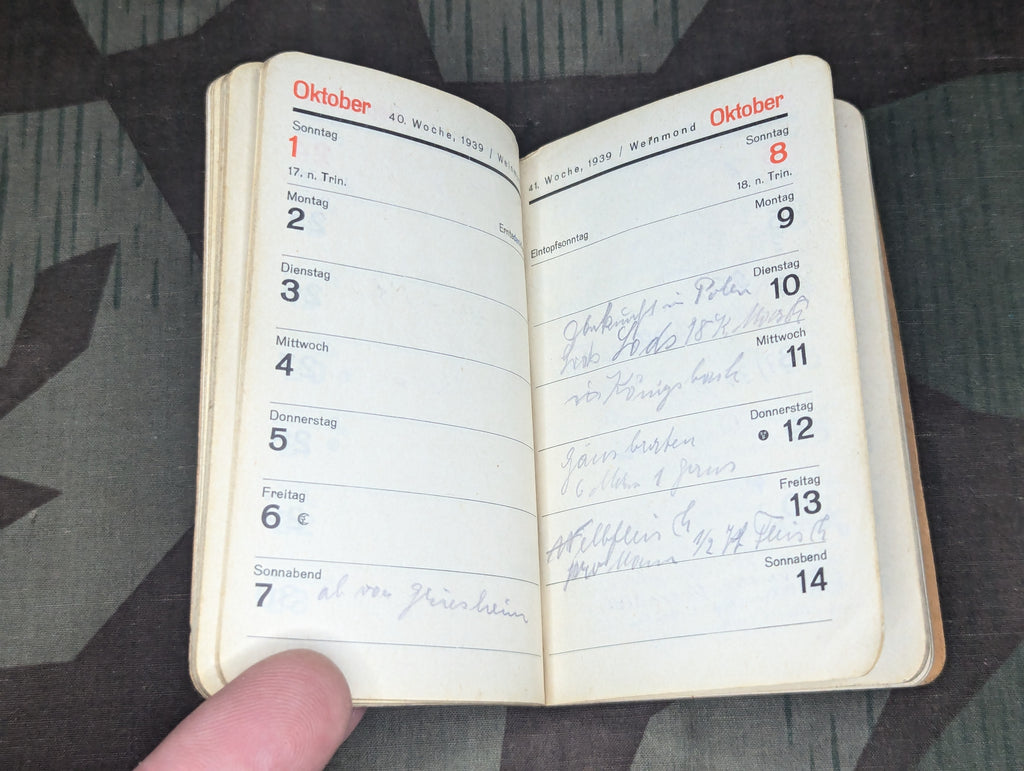 Oktober
40. Woche, 1939 /
Sonntag
1
17. n. Trin.
Montag
2
Dienstag
3
Mittwoch
4
Donnerstag
5
Freitag
6
Sonnabend
7
ab von Griesheim
Oktober
41. Woche, 1939 / Weinmond
Sonntag
8
18. n. Trin.
Montag
9
Eintopfsonntag
Dienstag
10
in Polen
Lods 18 K
Mittwoch
11
in Königsbach
Donnerstag
12
Gänsbraten
6 Mann 1 Gans
Freitag
13
Fleisch
pro Mann 1/2
Sonnabend
14